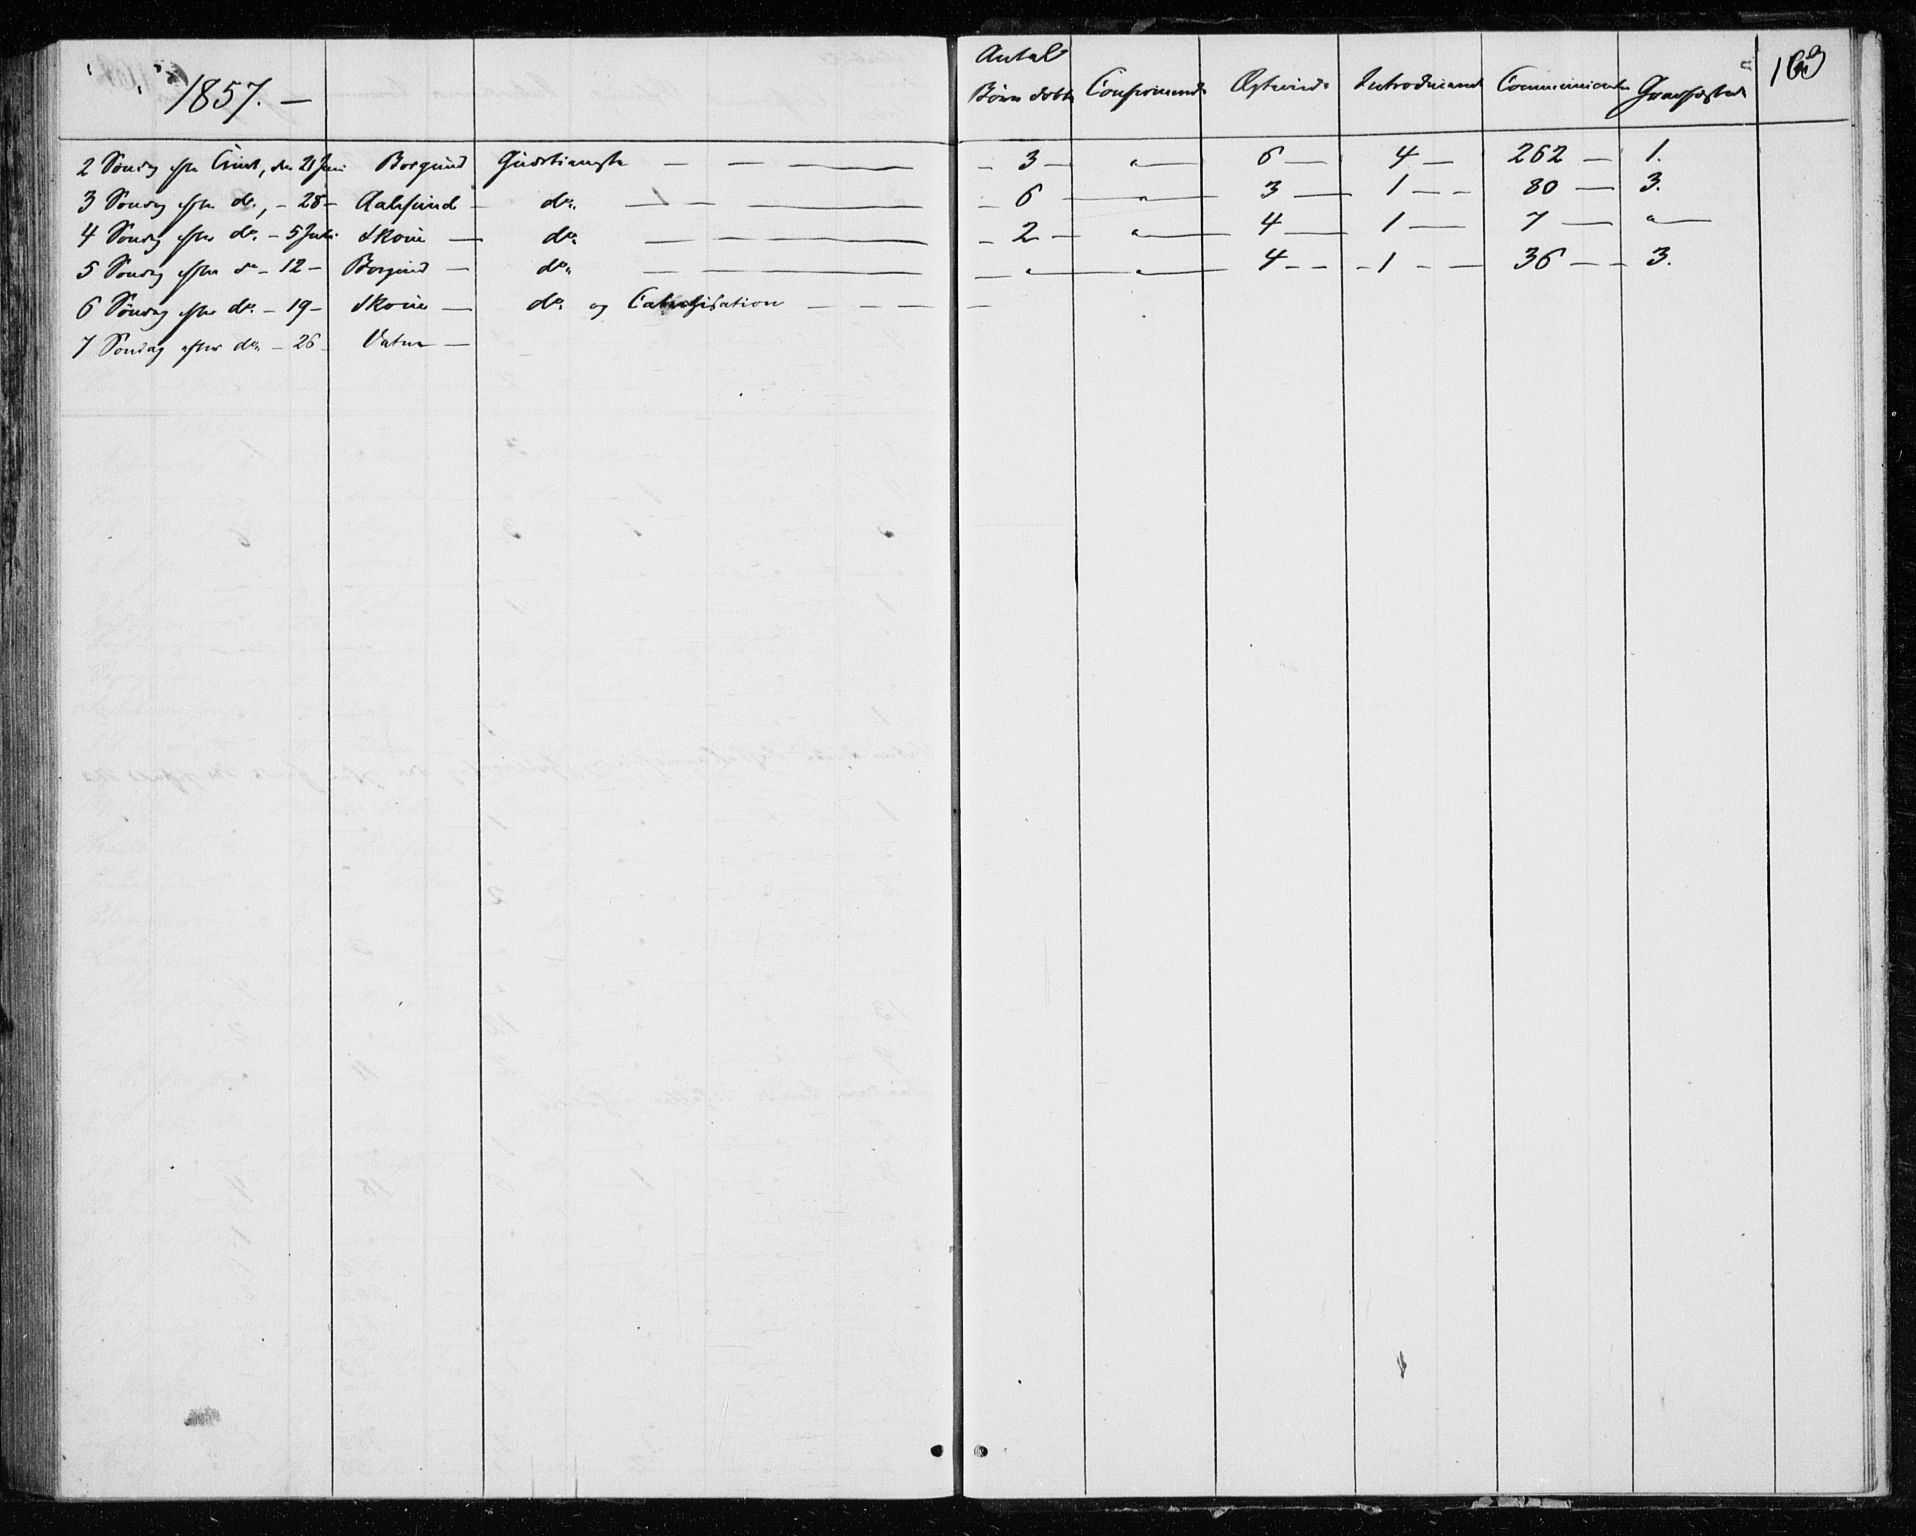 1857. —
Antal
Børn døbte Confirmerede Ægteviede Introducerede Communicanter Gravfæstede 163
2 Søndag efter Trinit, den 21 Juni Borgund Gudstieneste — — — — 3 — " — 6 — 4 — 262 — 1.
3 Søndag efter do., — 28 — Aalesund — do. — — — — — 6 — " — 3 — 1 — — 80 — 3.
4 Søndag efter do. — 5 Juli Skouje — do. — — — — — 2 — " — 4 — 1 — 7 — " —
5 Søndag efter do — 12 — Borgund — do. — — — — — " — " — 4 — — 1 — — 36 — — 3.
6 Søndag efter do. — 19 — Skouje — do. og Catechisation — — — —
7 Søndag efter do. — 26 — Vatne —